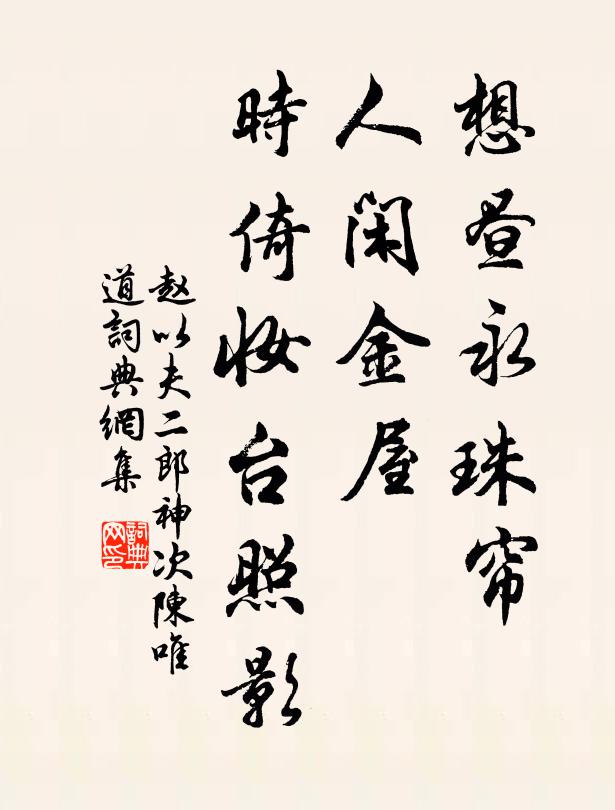 想昼永珠帘
人闲金屋
時倚妆台照影
赵以夫二郎神次陳唯
道詞典網集
詞典
网印